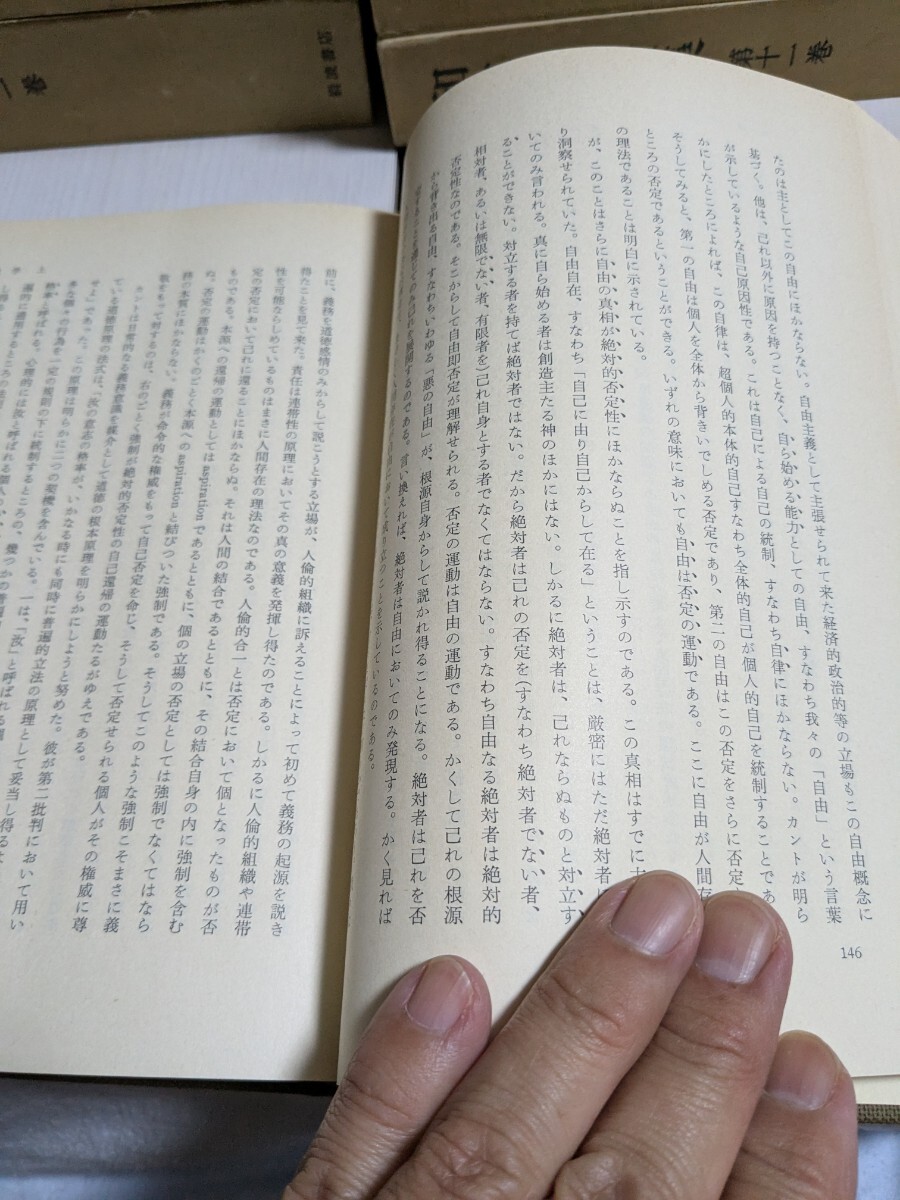 岩波書店
第十一巻
たのは主としてこの自由にほかならない。自由主義として主張せられて来た経済的政治的等の立場もこの自由概念に
基づく。他は、己れ以外に原因を持つことなく、自ら始める能力としての自由、すなわち我々の「自由」という言葉
が示しているような自己原因性である。これは自己による自己の統制、すなわち自律にほかならない。カントが明ら
かにしたところによれば、この自律は、超個人的本体的自己すなわち全体的自己が個人的自己を統制することであ
そうしてみると、第一の自由は個人を全体から背きいでしめる否定であり、第二の自由はこの否定をさらに否定
ところの否定であるということができる。いずれの意味においても自由は否定の運動である。ここに自由が人間存
の理法であることは明白に示されている。
が、このことはさらに自由の真相が絶対的否定性にほかならぬことを指し示すのである。この真相はすでに
り洞察せられていた。自由自在、すなわち「自己に由り自己からして在る」ということは、厳密にはただ絶対者に
いてのみ言われる。真に自ら始める者は創造主たる神のほかにはない。しかるに絶対者は、己れならぬものと対立す
ることができない。対立する者を持てば絶対者ではない。だから絶対者は己れの否定を(すなわち絶対者でない者、
相対者、あるいは無限でない者、有限者を)己れ自身とする者でなくてはならない。すなわち自由なる絶対者は絶対的
否定性なのである。そこからして自由即否定が理解せられる。否定の運動は自由の運動である。かくして己れの根源
から背き出る自由、すなわちいわゆる「悪の自由」が、根源自身からして説かれ得ることになる。絶対者は己れを否
定することを通じてのみ己れを展開するのである。言い換えれば、絶対者は自由においてのみ発現する。かく見れば
成り立つことを示しているのである。
146
前に、義務を道徳感情のみからして説こうとする立場が、人倫的組織に訴えることによって初めて義務の起源を説き
得たことを見て来た。責任は連帯性の原理においてその真の意義を発揮し得たのである。しかるに人倫的組織や連帯
性を可能ならしめているものはまさに人間存在の理法なのである。人倫的合一とは否定において個となったものが否
定の否定において己れに還ることにほかならぬ。それは人間の結合であるとともに、その結合自身の内に強制を含む
ものである。本源への還帰の運動としては aspiration であるとともに、個の立場の否定としては強制でなくてはなら
ぬ。否定の運動はかくのごとく本源への aspiration と結びついた強制である。そうしてこのような強制こそまさに義
務の本質にほかならない。義務が命令的な権威をもって自己否定を命じ、そうして否定せられる個人がその権威に尊
敬をもって対するのは、右のごとく強制が絶対的否定性の自己還帰の運動たるがゆえである。
カントは日常的な義務意識を媒介として道徳の根本原理を明らかにしようと努めた。彼が第二批判において用い
ている道徳原理の法式は、「汝の意志の格率が、いかなる時にも同時に普遍的立法の原理として妥当し得る
せよ」であった。この原理は明らかに二つの契機を含んでいる。一は、「汝」と呼ばれる
な個々の行為を一定の規則の下に統制するところの、幾つかの
格率と呼ばれる。心理的には汝と呼ばれる個人の
遍的に適用するところの法則